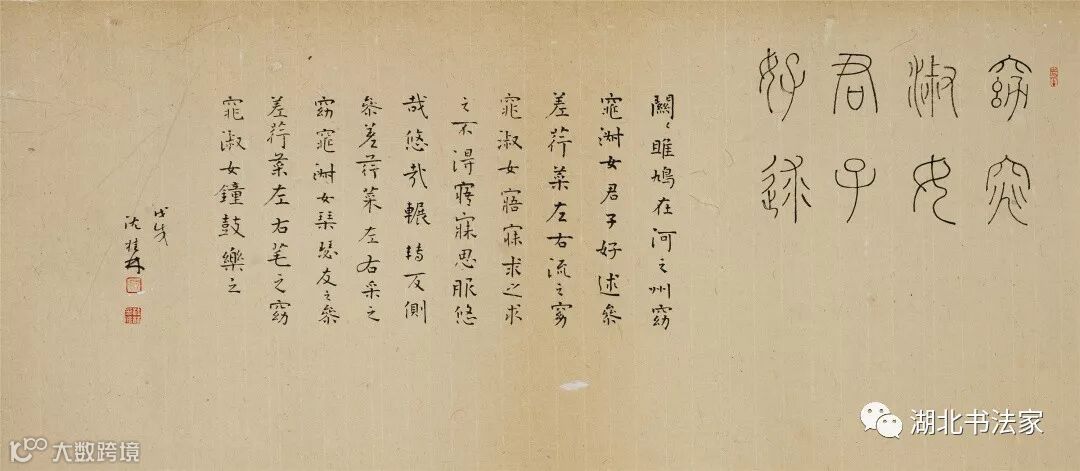 窈窕
淑女
君子
好逑
關〻雎鳩在河之州窈
窕淑女君子好逑參
差荇菜左右流之窈
窕淑女寤寐求之求
之不得寤寐思服悠
哉悠哉輾轉反側
參差荇菜左右采之
窈窕淑女琴瑟友之參
差荇菜左右芼之窈
窕淑女鐘鼓樂之
戊戌
湖北书法家
10100 大数跨境